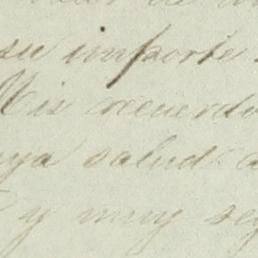 su importe
Mis recuerdo
ya salud a
y muy seg